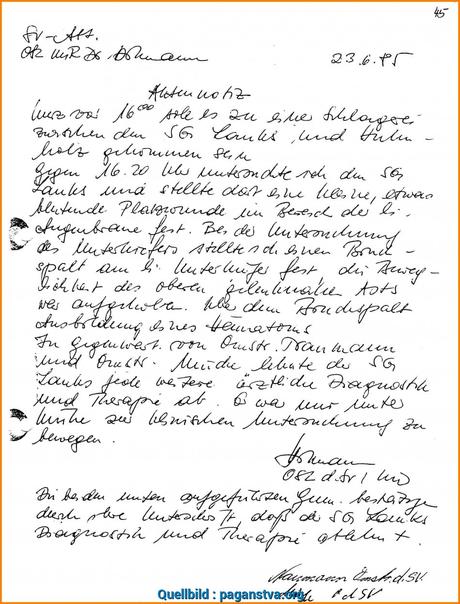 45
SV-Akt.
OSL MR Dr Hohmann
23.6.85
Aktennotiz
Kurz vor 16⁰⁰ solle es zu einer Schlägerei
zwischen dem SG Lanks und
holz gekommen sein
Gegen 16.20 Uhr untersuchte ich den SG
Lanks und stellte dort eine kleine, etwas
blutende Platzwunde im Bereich der li.
Augenbraue fest. Bei der Untersuchung
des Unterkiefers stellte ich einen Bruch-
spalt am li Unterkiefer fest die Beweg-
lichkeit des oberen gelenknahen Asts
war aufgehoben. über dem Bruchspalt
Ausbildung eines Hämatoms
In Gegenwart von Omstr. Naumann
und Omstr. lehnte der SG
Lanks jede weitere ärztliche Diagnostik
und Therapie ab. Er war nur unter
Mühe zur klinischen Untersuchung zu
bewegen.
Hohmann
OSL d. SV
Die beiden unten aufgeführten Gen. bestätigen
durch ihre Unterschrift, daß der SG Lanks
Diagnostik und Therapie ablehnt.
Naumann Omstr. d. SV
d SV
Quellbild : paganstva.org